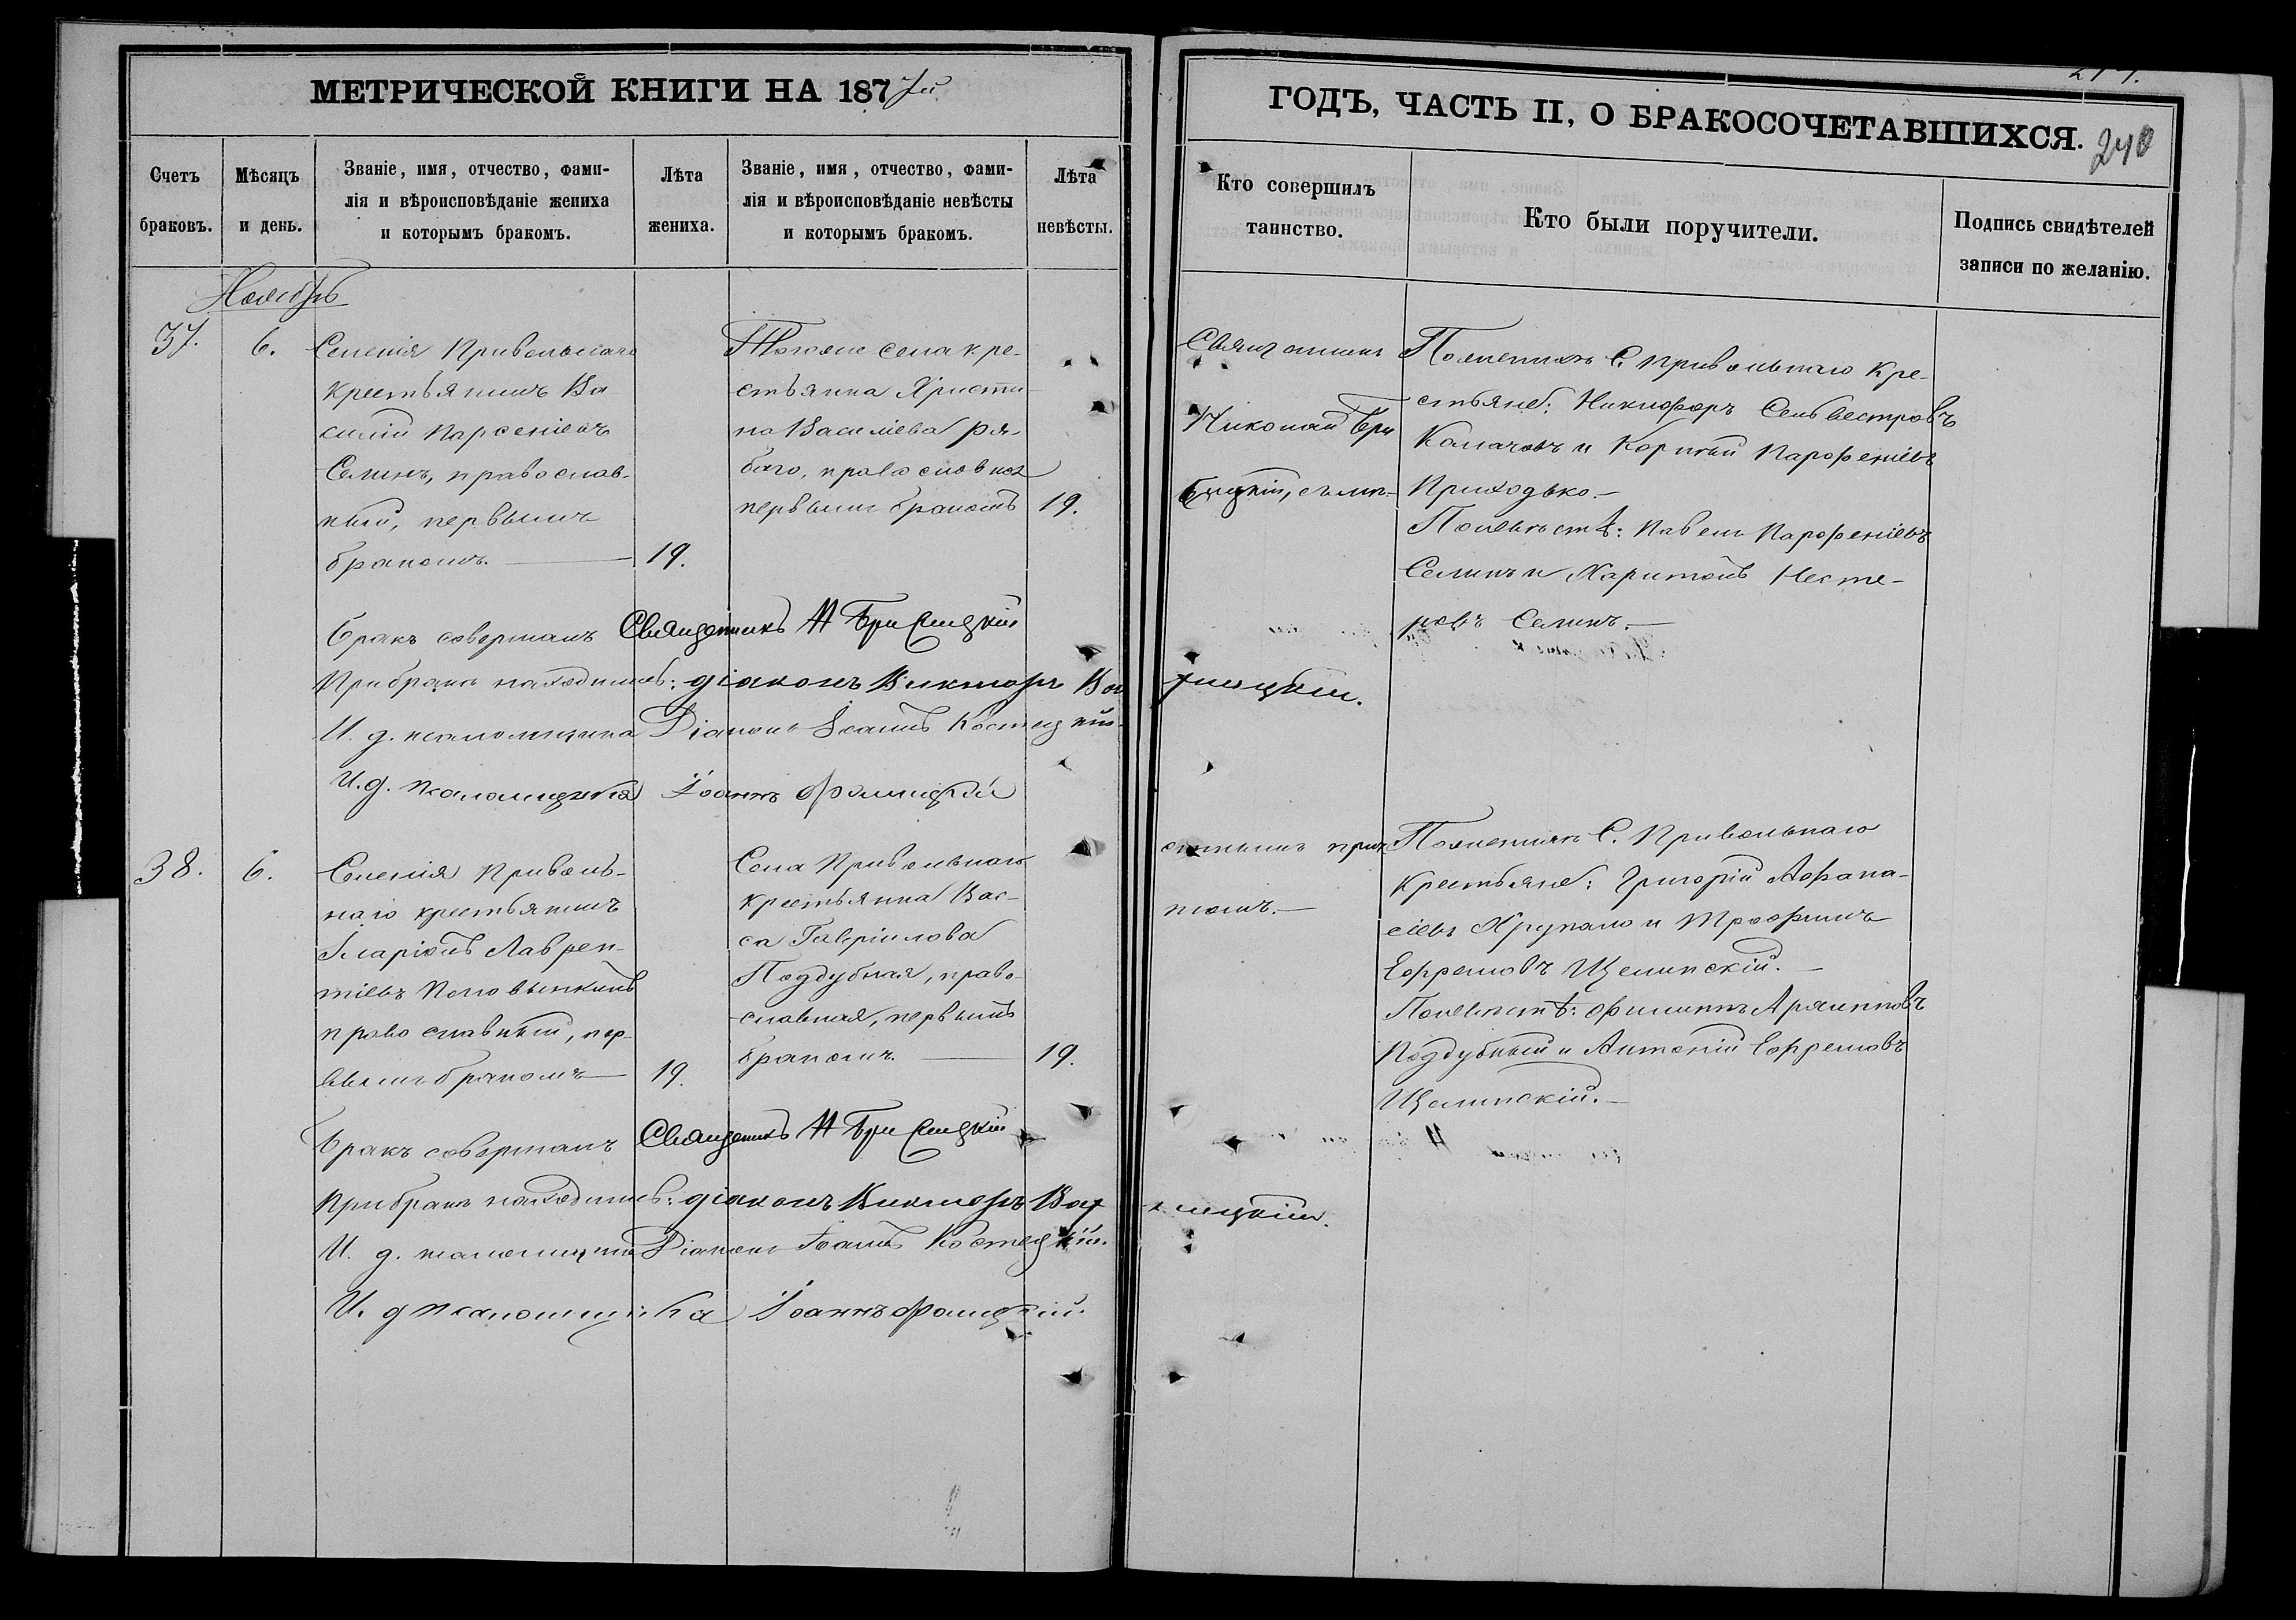 МЕТРИЧЕСКОЙ КНИГИ НА 1877й
ГОДЪ, ЧАСТЬ II, О БРАКОСОЧЕТАВШИХСЯ.
240
Счетъ браковъ.
Мѣсяцъ и день.
Званіе, имя, отчество, фами-
лія и вѣроисповѣданіе жениха
и которымъ бракомъ.
Лѣта жениха.
Званіе, имя, отчество, фами-
лія и вѣроисповѣданіе невѣсты
и которымъ бракомъ.
Лѣта невѣсты.
Кто совершилъ
таинство.
Кто были поручители.
Подпись свидѣтелей
записи по желанію.
Ноябрь
37.
6.
Селенія Привольнаго
крестьянинъ Ва
силій Парѳеніевъ
Селинъ, православ-
ный, первымъ
бракомъ.
19.
Тогоже села кре-
стьянка Христи
на Василіева Ря-
баго, православная
первымъ бракомъ
19.
Священникъ
Николай Бри
Поженихѣ С. Привольнаго кре-
стьяне: Никифоръ Сельвестровъ
Калачовъ и Корній Парѳеніевъ
Приходько.
Поневѣстѣ: Павелъ Парѳеніевъ
Селинъ и Харитонъ Несте-
ровъ Селинъ.
Бракъ совершалъ Священникъ Н Брилицкій
При бракѣ находились: діаконъ Викторъ
И. д. псаломщика Діаконъ Іоаннъ Костецкій
И. д. псаломщика Іоаннъ Фомицкій
38.
6.
Селенія Приволь-
наго крестьянинъ
Иларіонъ Лаврен-
тіевъ Половынкинъ
православный, пер-
вымъ бракомъ
19.
Села Привольнаго
крестьянка Вас-
са Гавріилова
Поддубная, право-
славная, первымъ
бракомъ.
19.
стнымъ прич
томъ.
Поженихѣ С. Привольнаго
крестьяне: Григорій Аѳана-
сіевъ Хрупало и Трофимъ
Ефремовъ Щелинскій.
Поневѣстѣ: Филиппъ Архипповъ
Поддубный и Антоній Ефремовъ
Щелинскій.
Бракъ совершалъ Священникъ Н Брилицкій
При бракѣ находились: діаконъ Викторъ
И. д. псаломщика Діаконъ Іоаннъ Костецкій.
И. д псаломщика Іоаннъ Фомицкій.